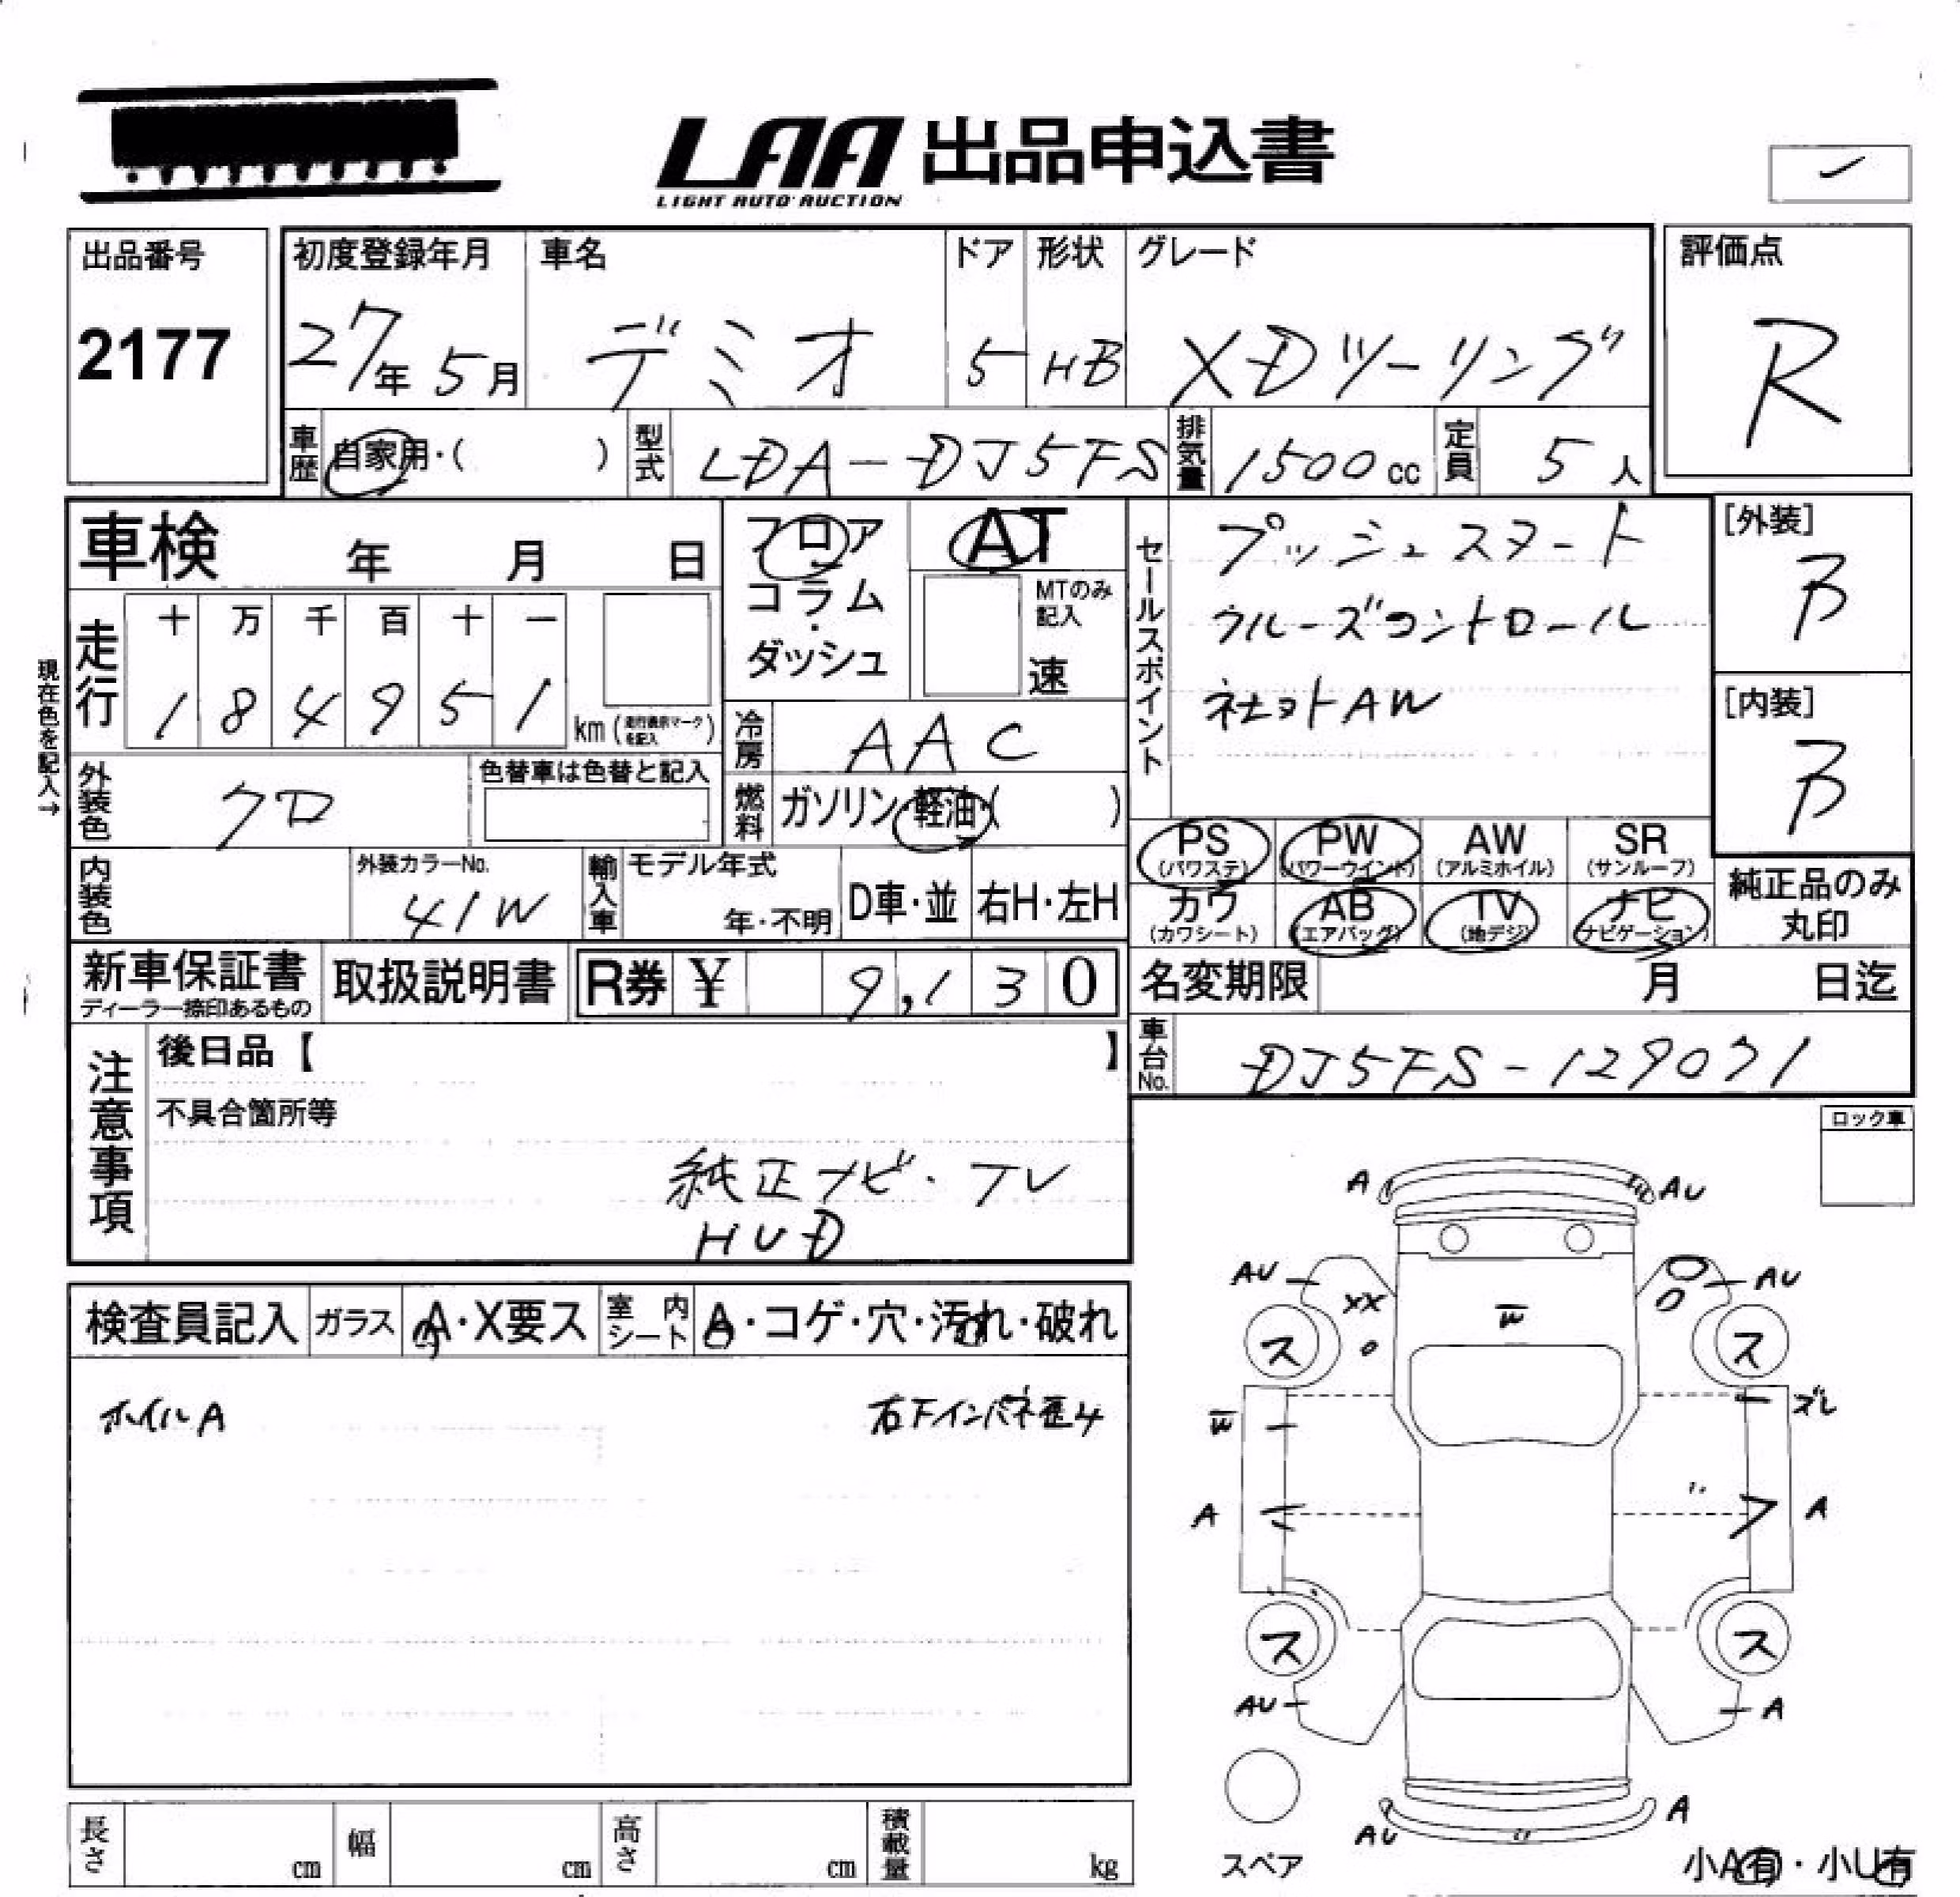 LAA 出品申込書
LIGHT AUTO AUCTION
出品番号
2177
初度登録年月
27年 5月
車名
デミオ
ドア
5
形状
HB
グレード
XDツーリング
評価点
R
車歴
自家用・( )
型式
LDA-DJ5FS
排気量
1500cc
定員
5人
車検 年 月 日
フロア
コラム
・
ダッシュ
AT
MTのみ
記入
速
セールスポイント
プッシュスタート
クルーズコントロール
社外AW
[外装]
B
[内装]
B
現在色を記入→
走行
十 万 千 百 十 一
1 8 4 9 5 1
km (走行表示マークを記入)
冷房
AAC
外装色
クロ
色替車は色替と記入
燃料
ガソリン・軽油・( )
内装色
外装カラーNo.
41W
輸入車
モデル年式
年・不明
D車・並
右H・左H
PS
(パワステ)
PW
(パワーウインド)
AW
(アルミホイル)
SR
(サンルーフ)
カワ
(カワシート)
AB
(エアバッグ)
TV
(地デジ)
ナビ
(ナビゲーション)
純正品のみ
丸印
新車保証書
ディーラー捺印あるもの
取扱説明書
R券 ¥ 9,130
名変期限 月 日迄
車台No.
DJ5FS-129071
注意事項
後日品【 】
不具合箇所等
純正ナビ・TV
HUD
ロック車
検査員記入
ガラス
A・X要ス
室内
シート
A・コゲ・穴・汚れ・破れ
ホイルA
右下インパネ歪4
A
AU
AU
AU
XX
W
ス
ス
W
ズレ
A
A
ス
ス
AU
A
スペア
AU
A
小A有・小U有
長さ cm
幅 cm
高さ cm
積載量 kg